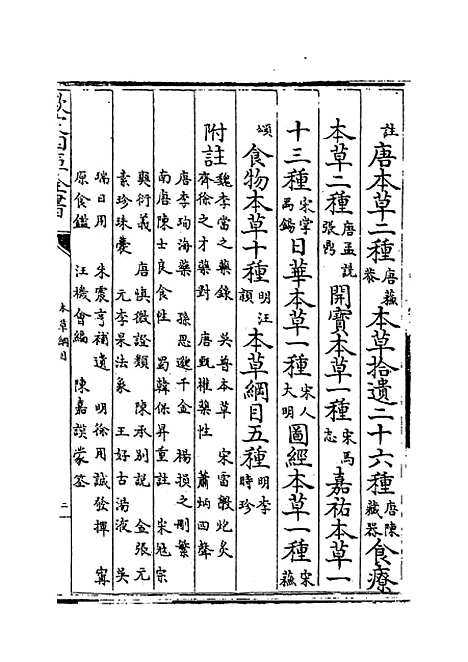 註 唐本草二種 唐蘇恭 本草拾遺二十六種 唐陳藏器 食療
本草二種 唐孟詵張鼎 開寶本草一種 宋馬志 嘉祐本草一
十三種 宋掌禹錫 日華本草一種 宋人大明 圖經本草一種 宋蘇
頌 食物本草十種 明汪穎 本草綱目五種 明李時珍
附註 魏李當之藥錄 吳普本草 宋雷斆炮炙
齊徐之才藥對 唐甄權藥性 蕭炳四聲
唐李珣海藥 孫思邈千金 楊損之刪繁
南唐陳士良食性 蜀韓保昇重註 宋寇宗
奭衍義 唐慎微證類 陳承別說 金張元
素珍珠囊 元李杲法象 王好古湯液 吳
瑞日用 朱震亨補遺 明徐用誠發揮 寗
原食鑑 汪機會編 陳嘉謨蒙筌
欽定四庫全書
本草綱目